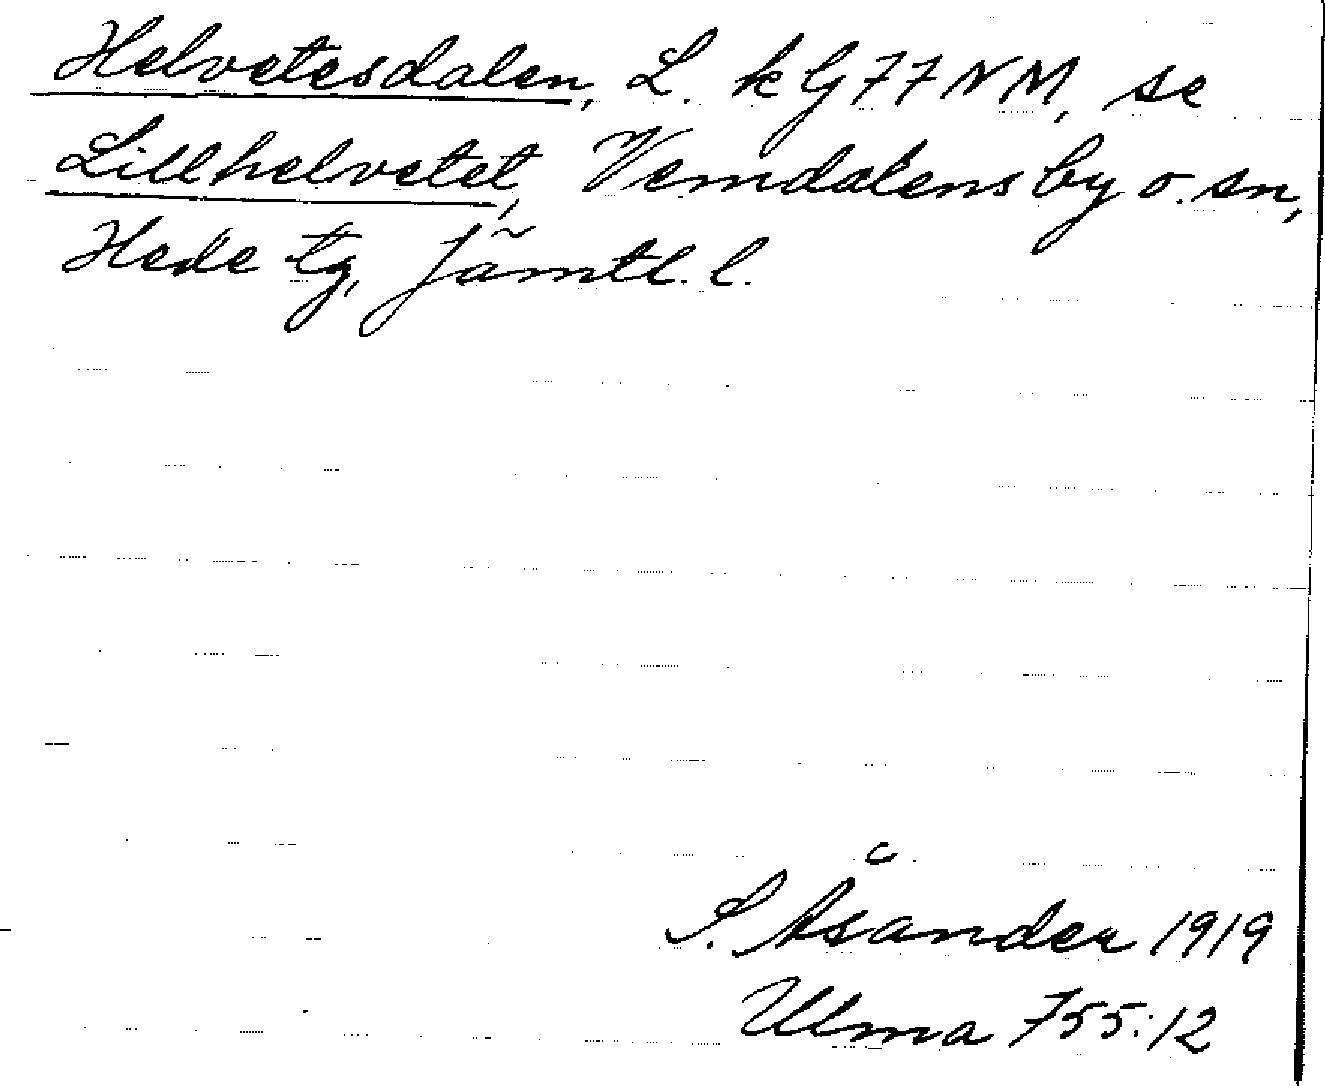 Helvetesdalen, L. k G77NM, se
Lillhelvetet, Vemdalens by o. sn,
Hede tg, Jämtl. l.
S. Åsander 1919
Ulma 755:12